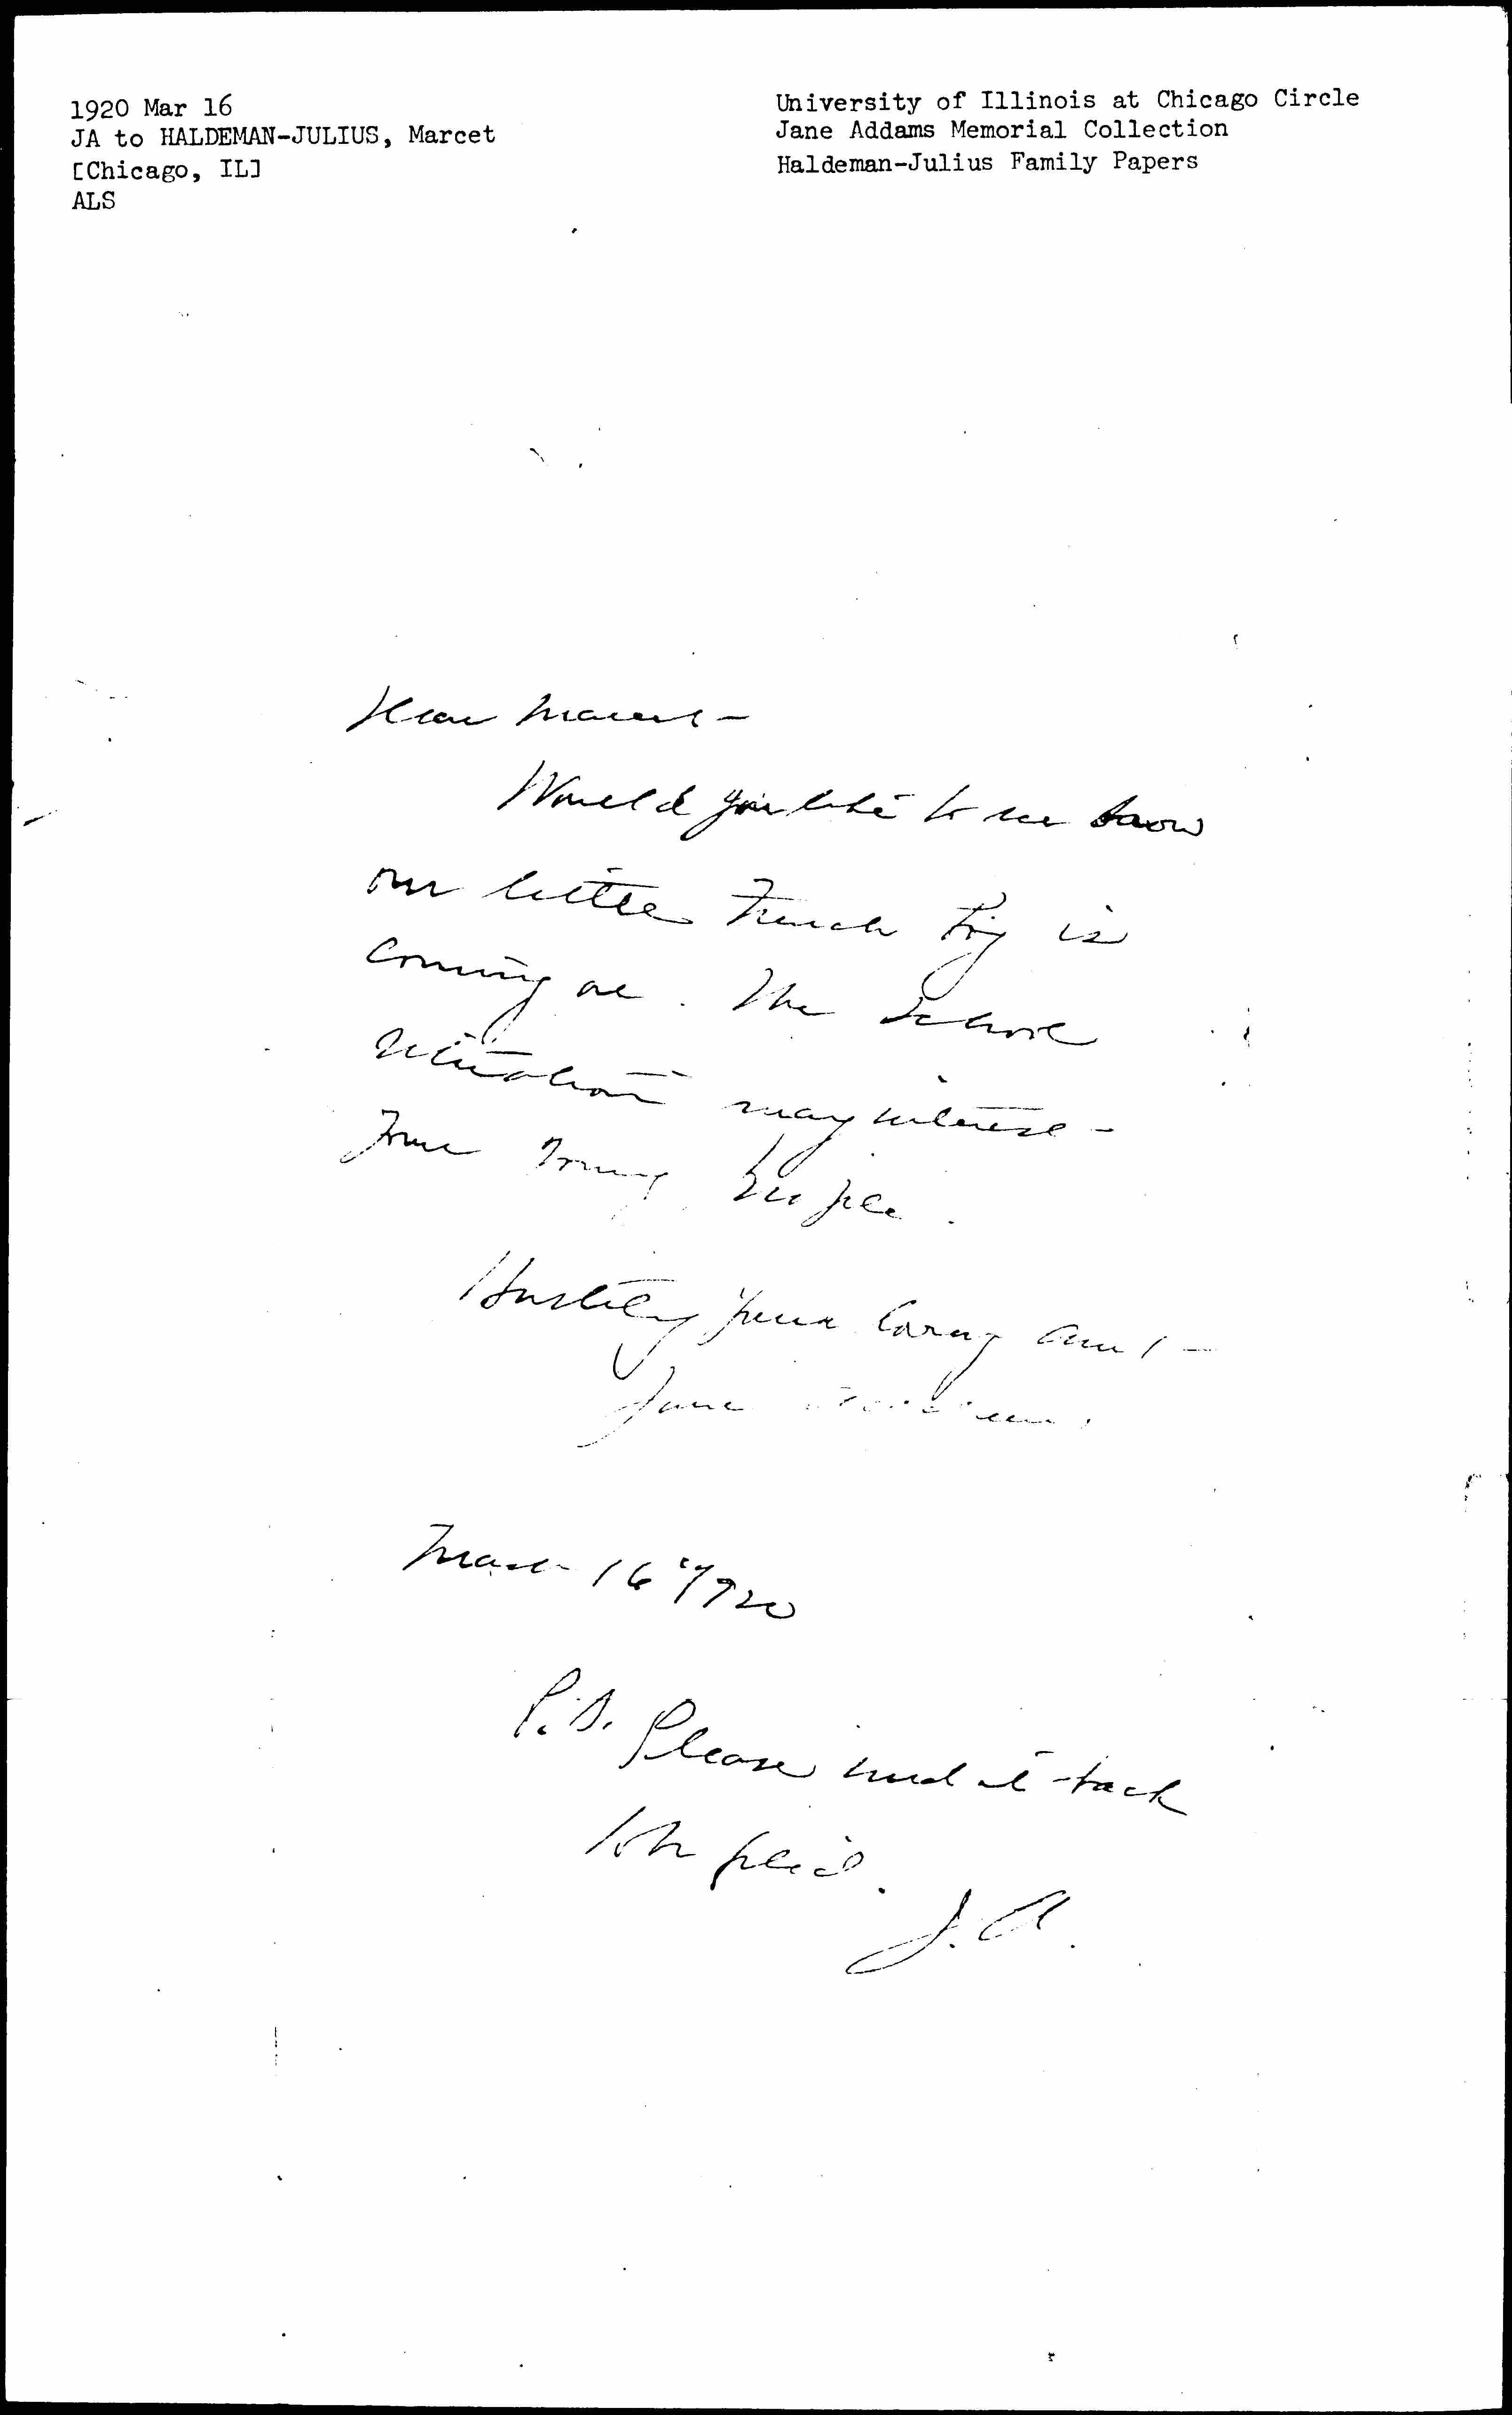 1920 Mar 16
JA to HALDEMAN-JULIUS, Marcet
[Chicago, IL]
ALS
University of Illinois at Chicago Circle
Jane Addams Memorial Collection
Haldeman-Julius Family Papers
Dear Marcet -
Would you like to see how
our little French boy is
coming on. The school
situation may interest -
your young people.
Hastily your loving aunt -
Jane Addams.
March 16" 1920
P.S. Please send it back
J.A.